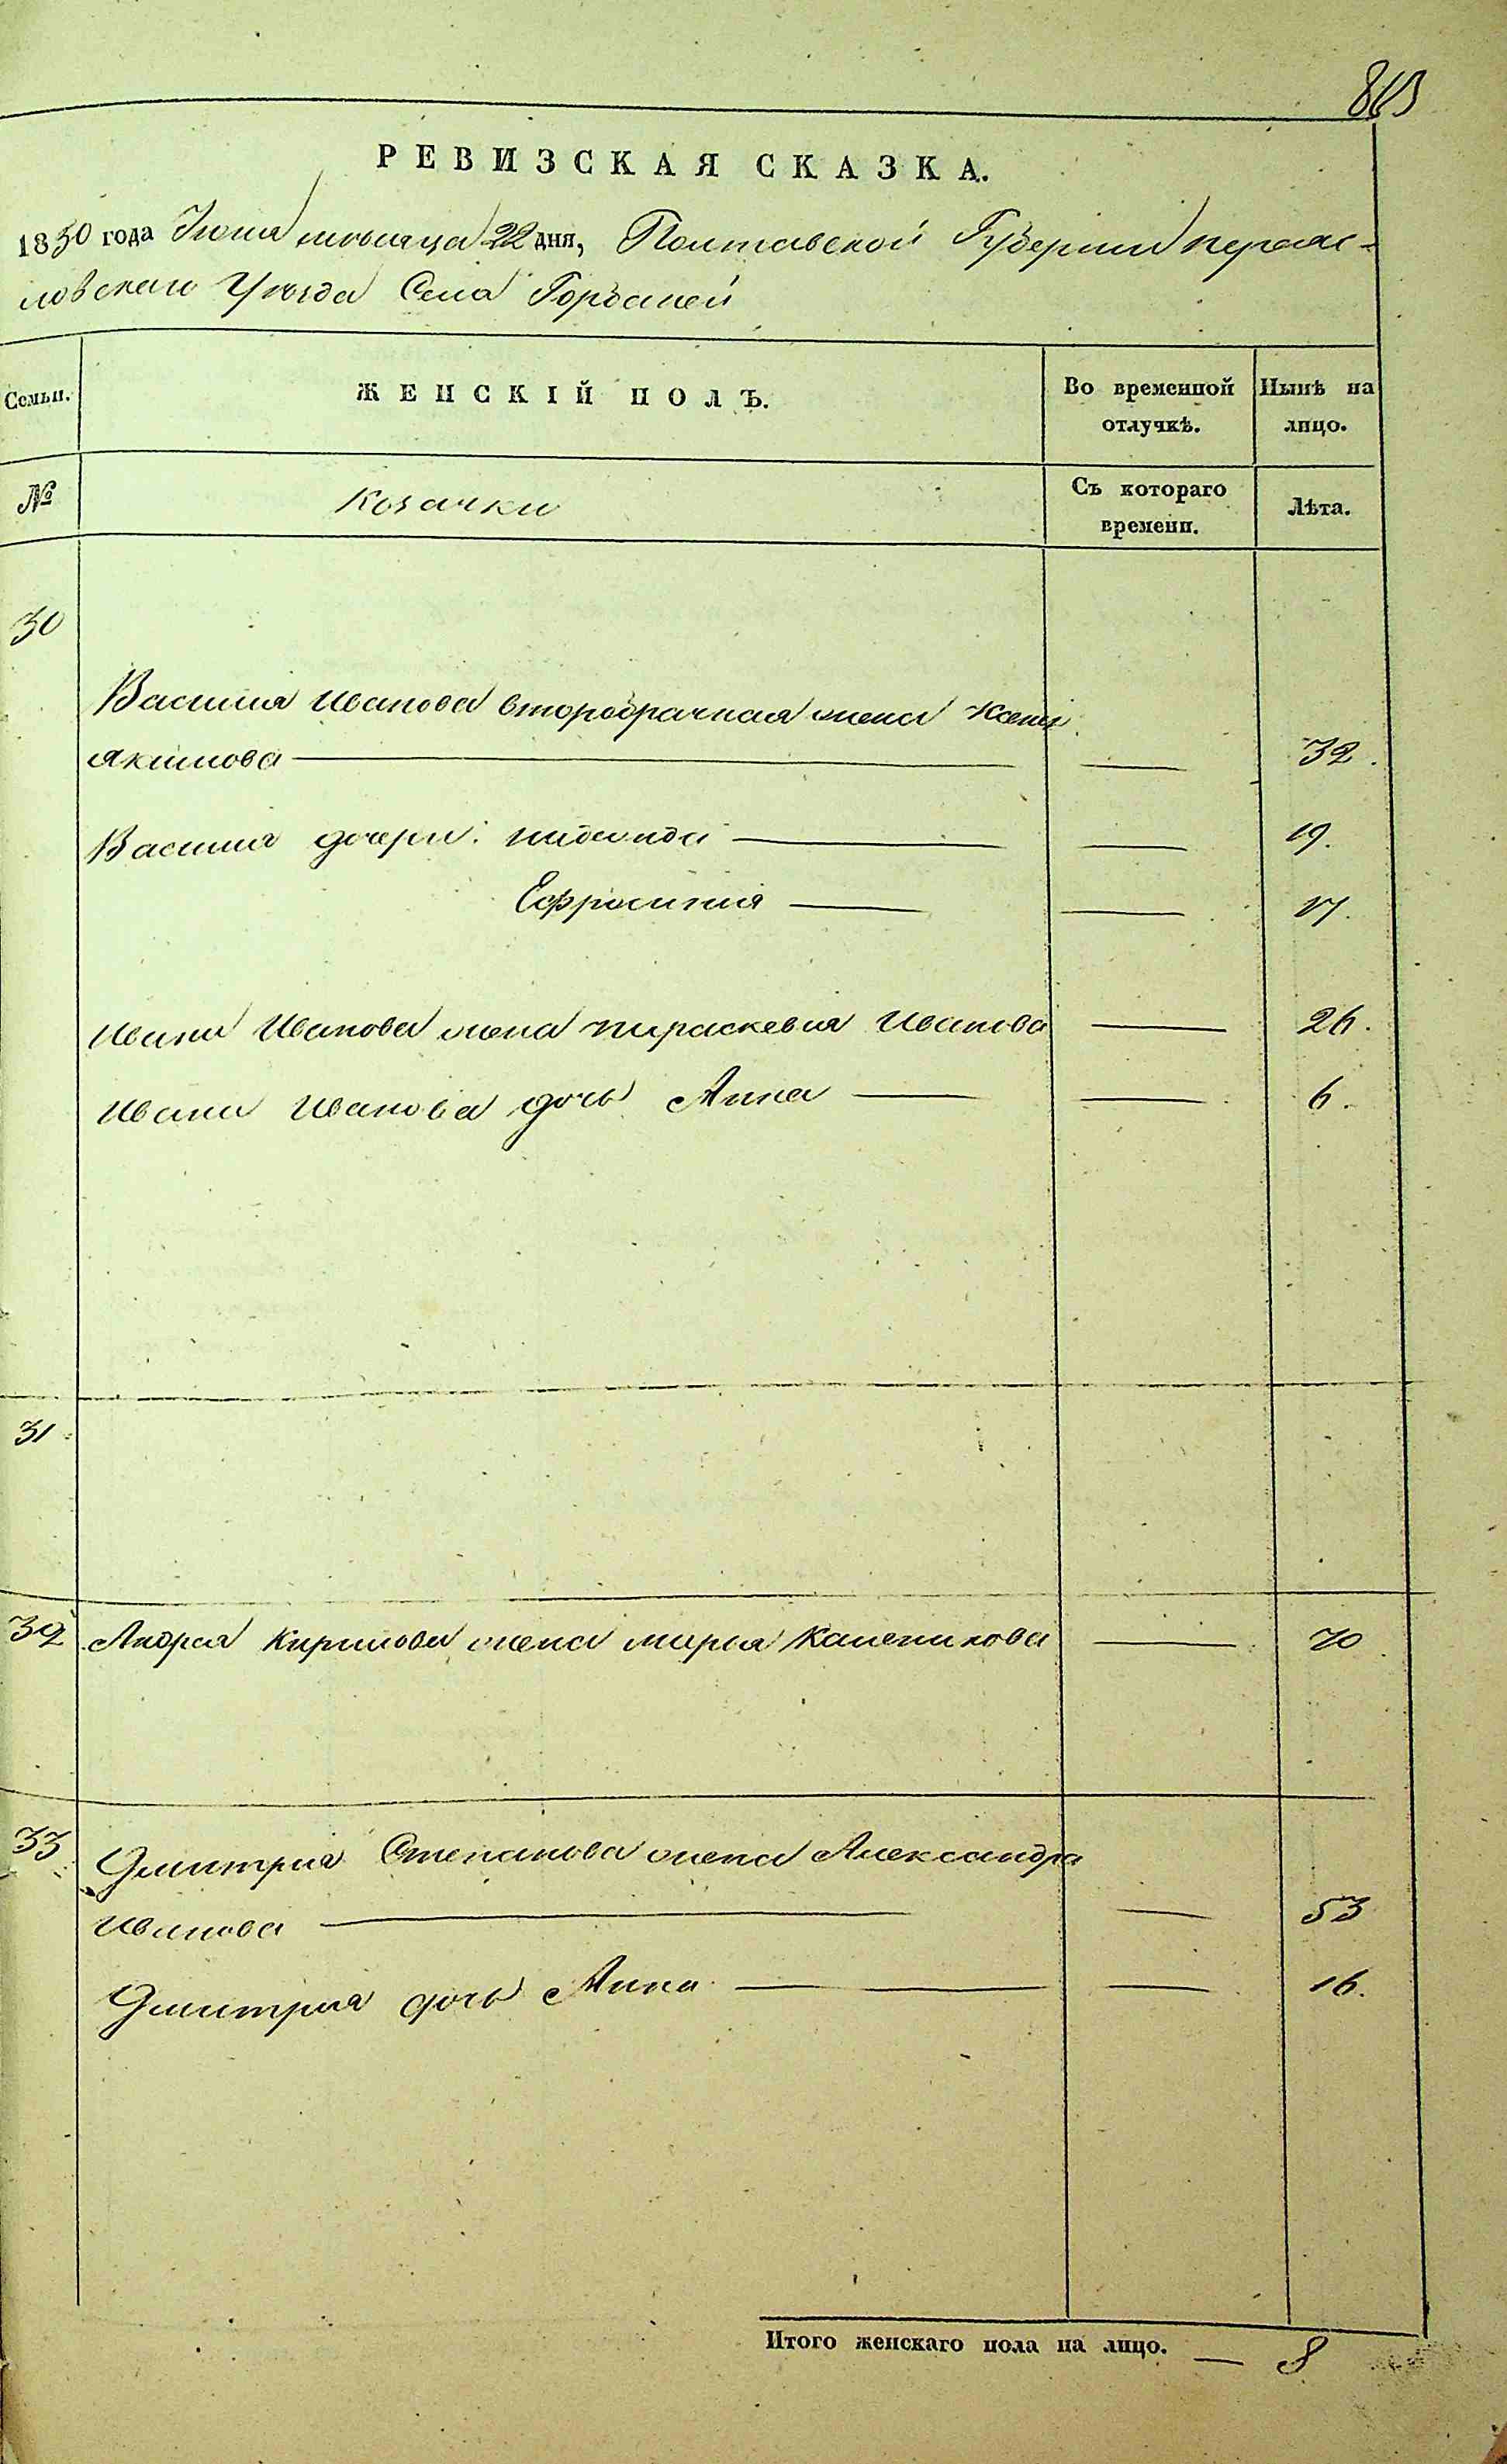 РЕВИЗСКАЯ СКАЗКА.
1850 года Июня месяца 22 дня, Полтавской Губернии переяс-
ловскаго Уезда Села Горбаней
Семьи. ЖЕНСКІЙ ПОЛЪ. Во временной отлучкѣ. Нынѣ на лицо.
№ Козачки Съ котораго времени. Лѣта.
30
Василия Иванова второбрачная жена Ксения
Якимова — — 32.
Василия дочери: — — 19.
Ефросиния — — 17.
Ивана Иванова жена параскевия Иванова — 26.
Ивана Иванова дочь Анна — — 6.
31
32 Андрея Кирилова жена марья Каленикова — 70
33 Дмитрия Степанова жена Александра
Иванова — — 53
Дмитрия дочь Анна — — 16.
Итого женскаго пола на лицо. — 8